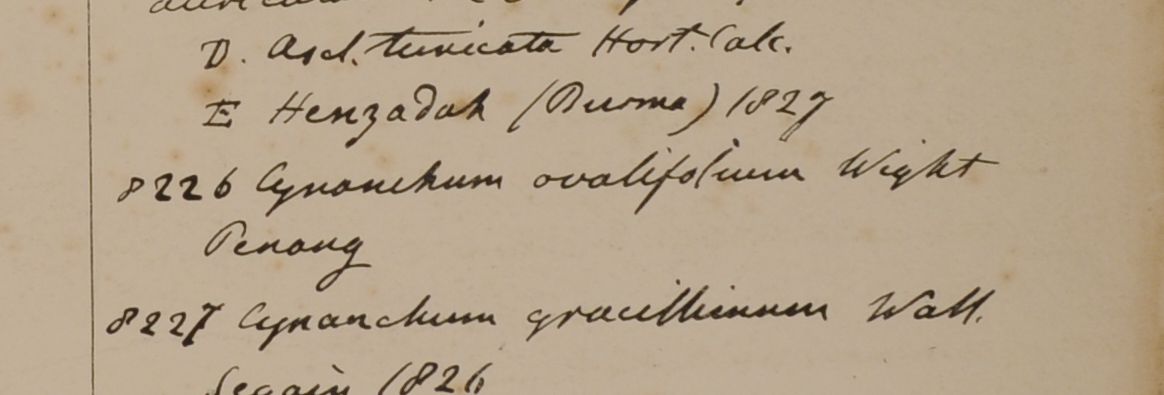 D. Ascl. tunicata Hort. Calc.
E Henzadah (Burma) 1827
8226 Cynanchum ovalifolium Wight
Penang
8227 Cynanchum gracillimum Wall.
Segain 1826